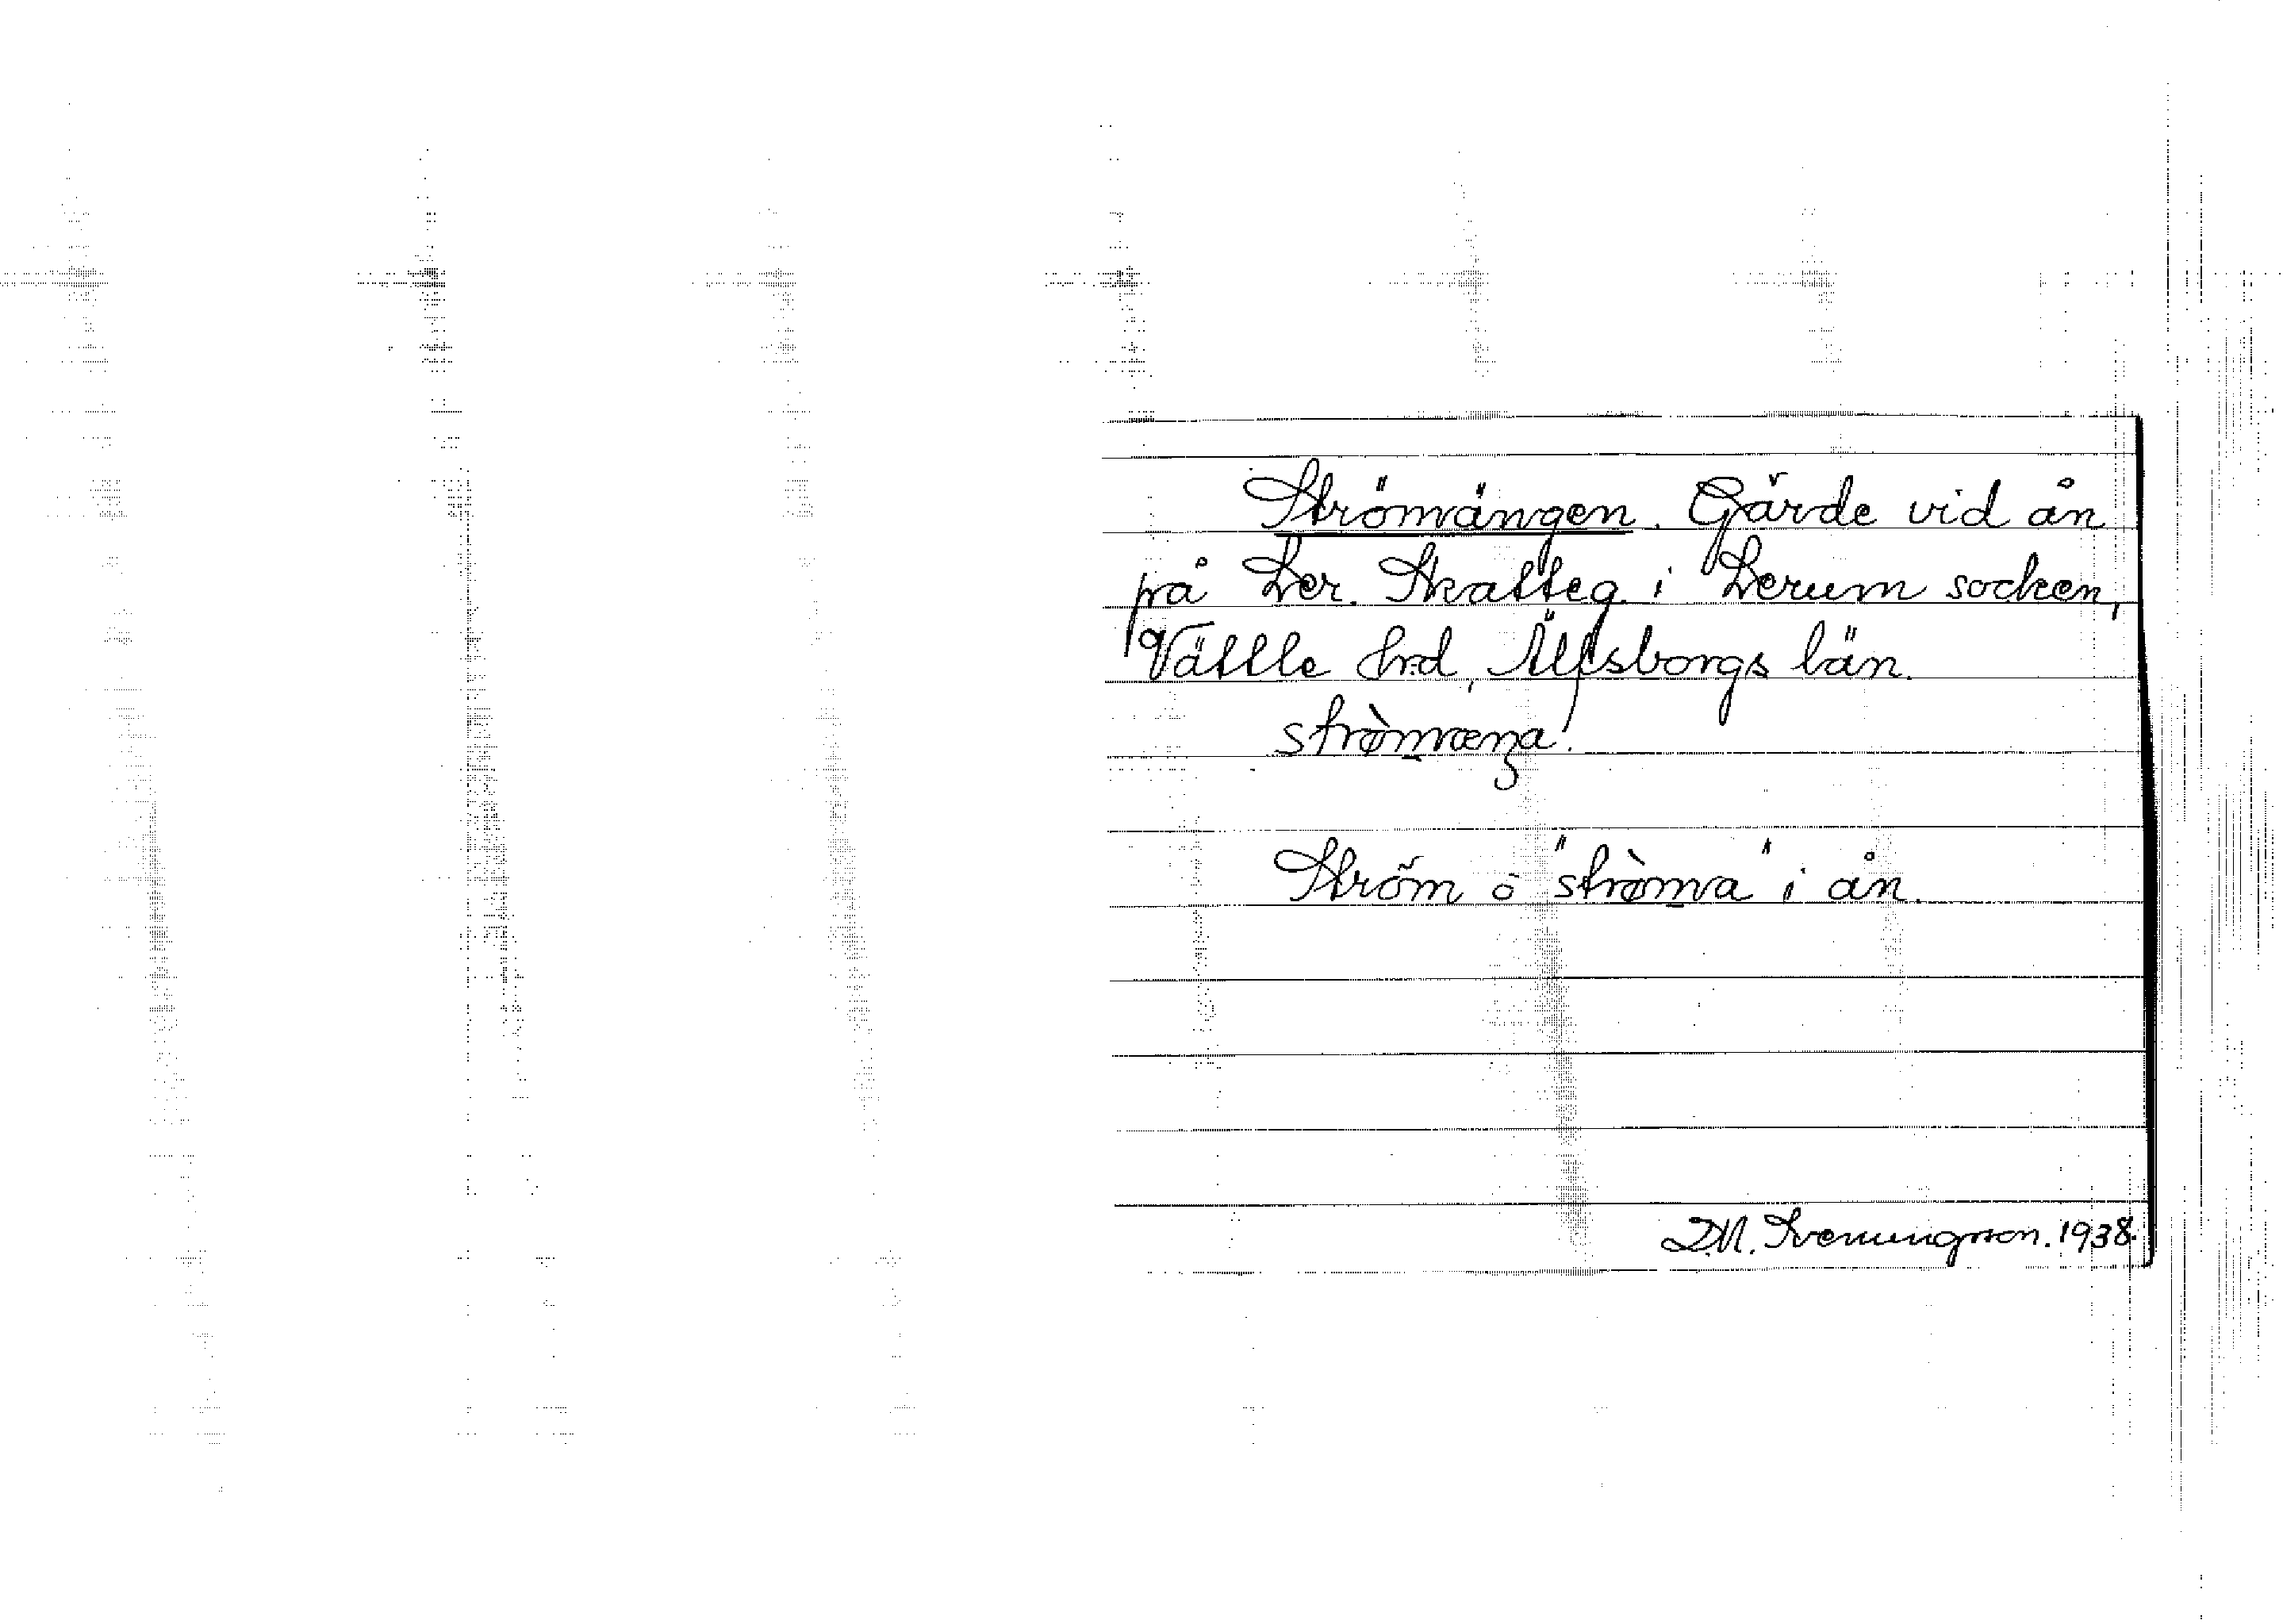 Strömängen. Gärde vid ån
på Ler. Skatteg. i Lerum socken,
Vättle hrd, Älfsborgs län.
stròmæŋa.
Ström o "stròma" i ån.
D.M. Svenungsson. 1938.